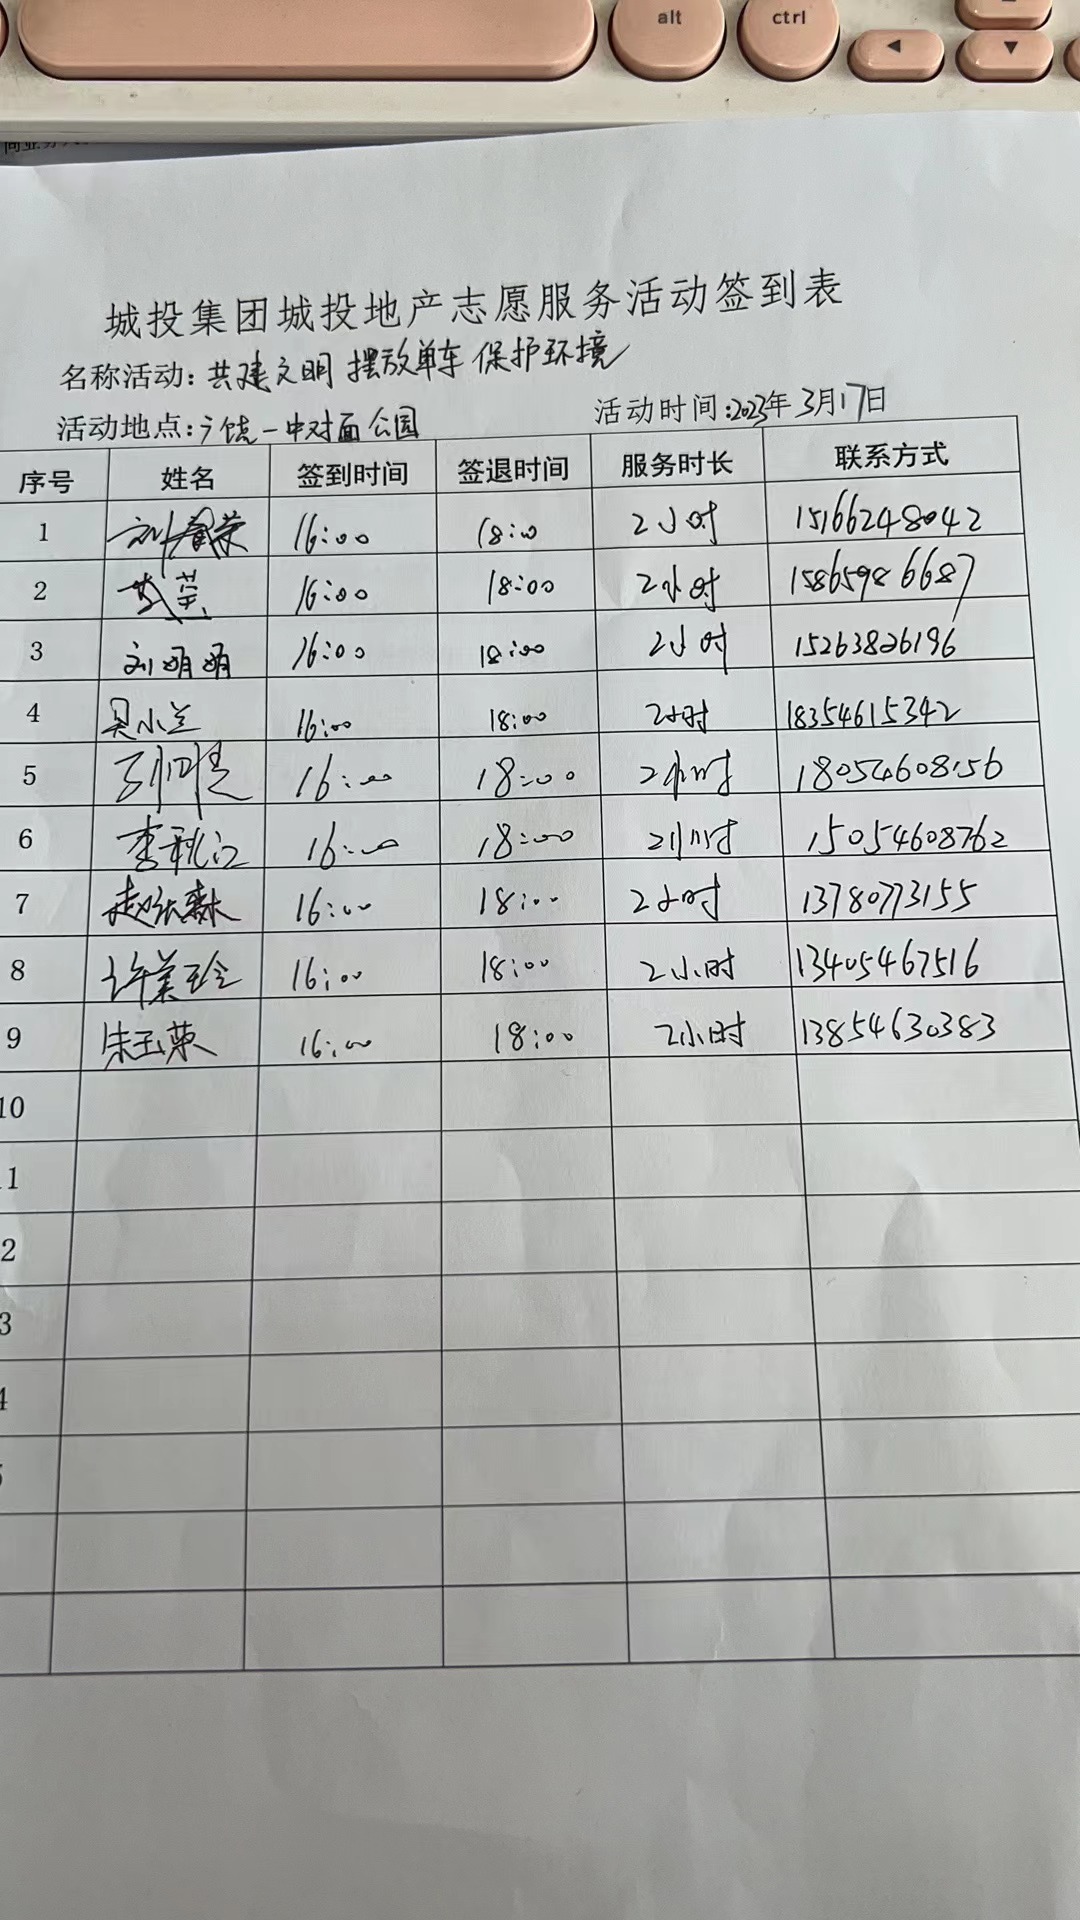 alt ctrl
城投集团城投地产志愿服务活动签到表
名称活动:共建文明 摆放单车 保护环境
活动地点:广饶一中对面公园 活动时间:2023年3月17日
序号 姓名 签到时间 签退时间 服务时长 联系方式
1 16:00 18:00 2小时 15166248042
2 16:00 18:00 2小时 15865986687
3 刘明明 16:00 18:00 2小时 15263826196
4 吴小兰 16:00 18:00 2小时 18354615342
5 16:00 18:00 2小时 18054608156
6 李秋江 16:00 18:00 2小时 15054608762
7 16:00 18:00 2小时 13780773155
8 许美玲 16:00 18:00 2小时 13405467516
9 朱玉荣 16:00 18:00 2小时 13854630383
10